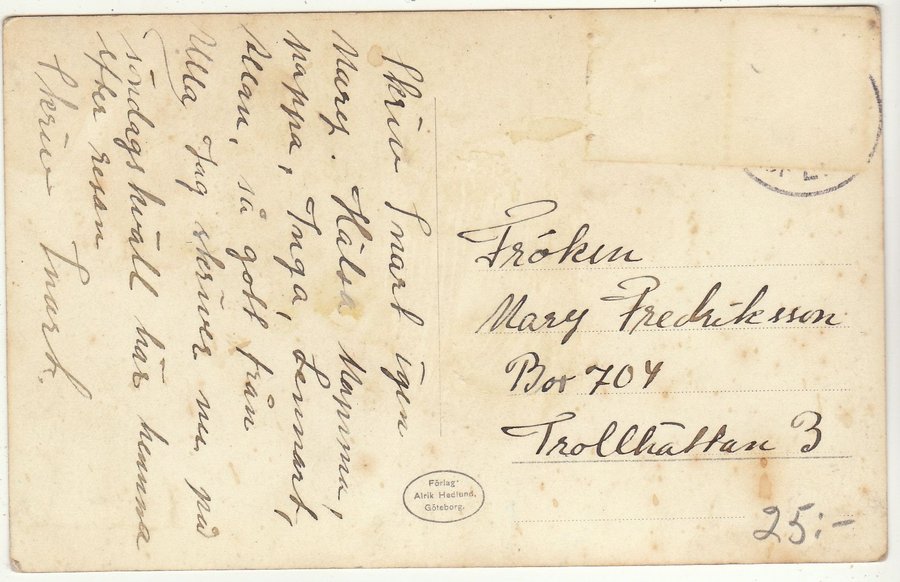 Skriv Snart igen
Mary. Hälsa Mamma,
Pappa, Inga, Lennart,
Allan, så gott från
Ulla Jag skriver nu på
söndagskväll här hemma
efter resan
Skriv Snart.
Fröken
Mary Fredriksson
Box 704
Trollhättan 3
Förlag:
Alrik Hedlund,
Göteborg.
25:-